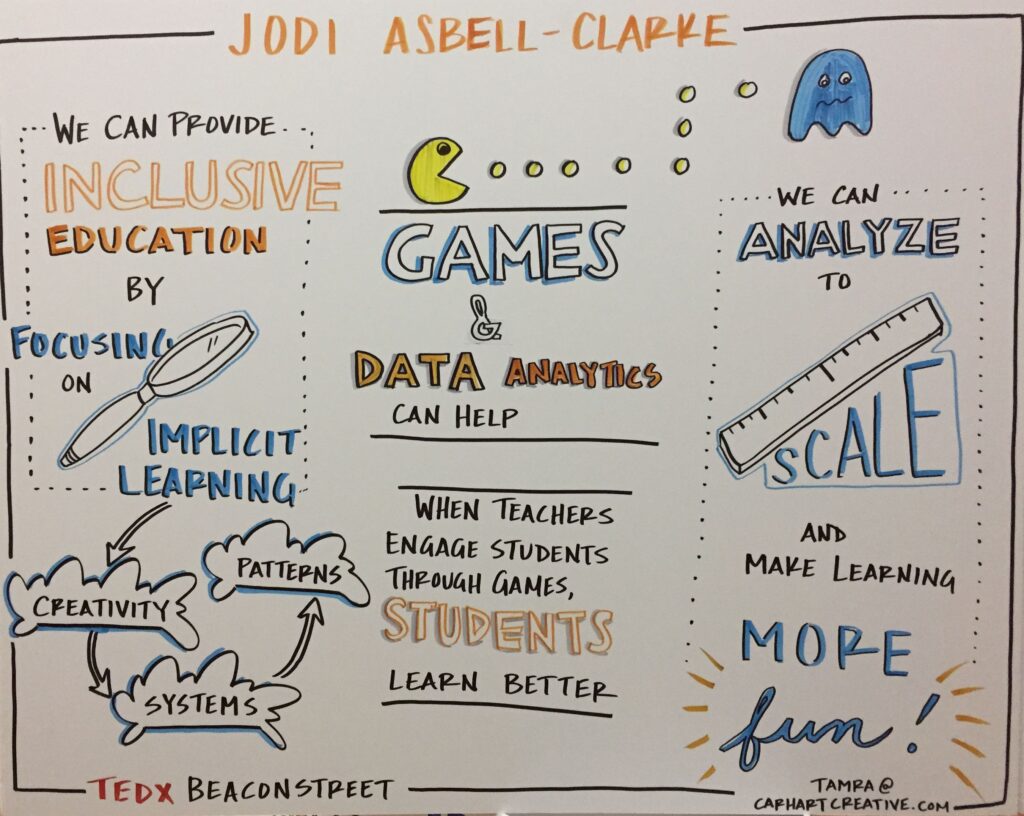 JODI ASBELL-CLARKE
WE CAN PROVIDE
INCLUSIVE
EDUCATION
BY
FOCUSING
ON
IMPLICIT
LEARNING
CREATIVITY
PATTERNS
SYSTEMS
GAMES
&
DATA ANALYTICS
CAN HELP
WHEN TEACHERS
ENGAGE STUDENTS
THROUGH GAMES,
STUDENTS
LEARN BETTER
WE CAN
ANALYZE
TO
SCALE
AND
MAKE LEARNING
MORE
fun!
TEDX BEACONSTREET
TAMRA@
CARHARTCREATIVE.COM